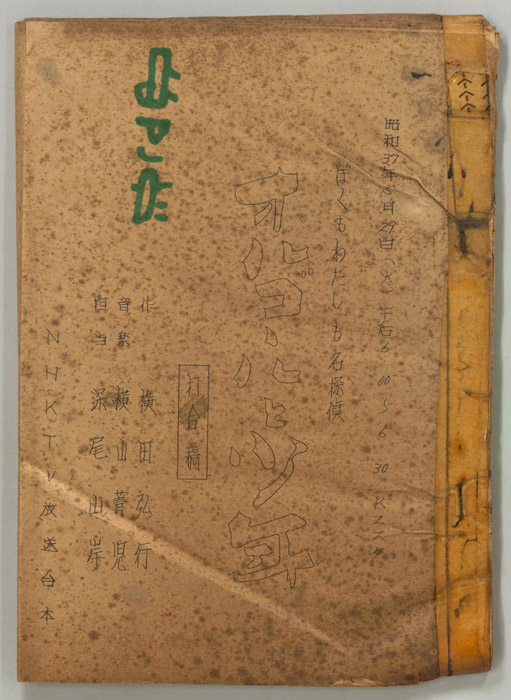 昭和37年5月29日(火)午后6.00〜6.30
ぼくもわたしも名探偵
オルゴールと少年
打合稿
作 横田弘行
音楽 横山菁児
担当 深尾 山岸
NHKTV放送台本
よこた